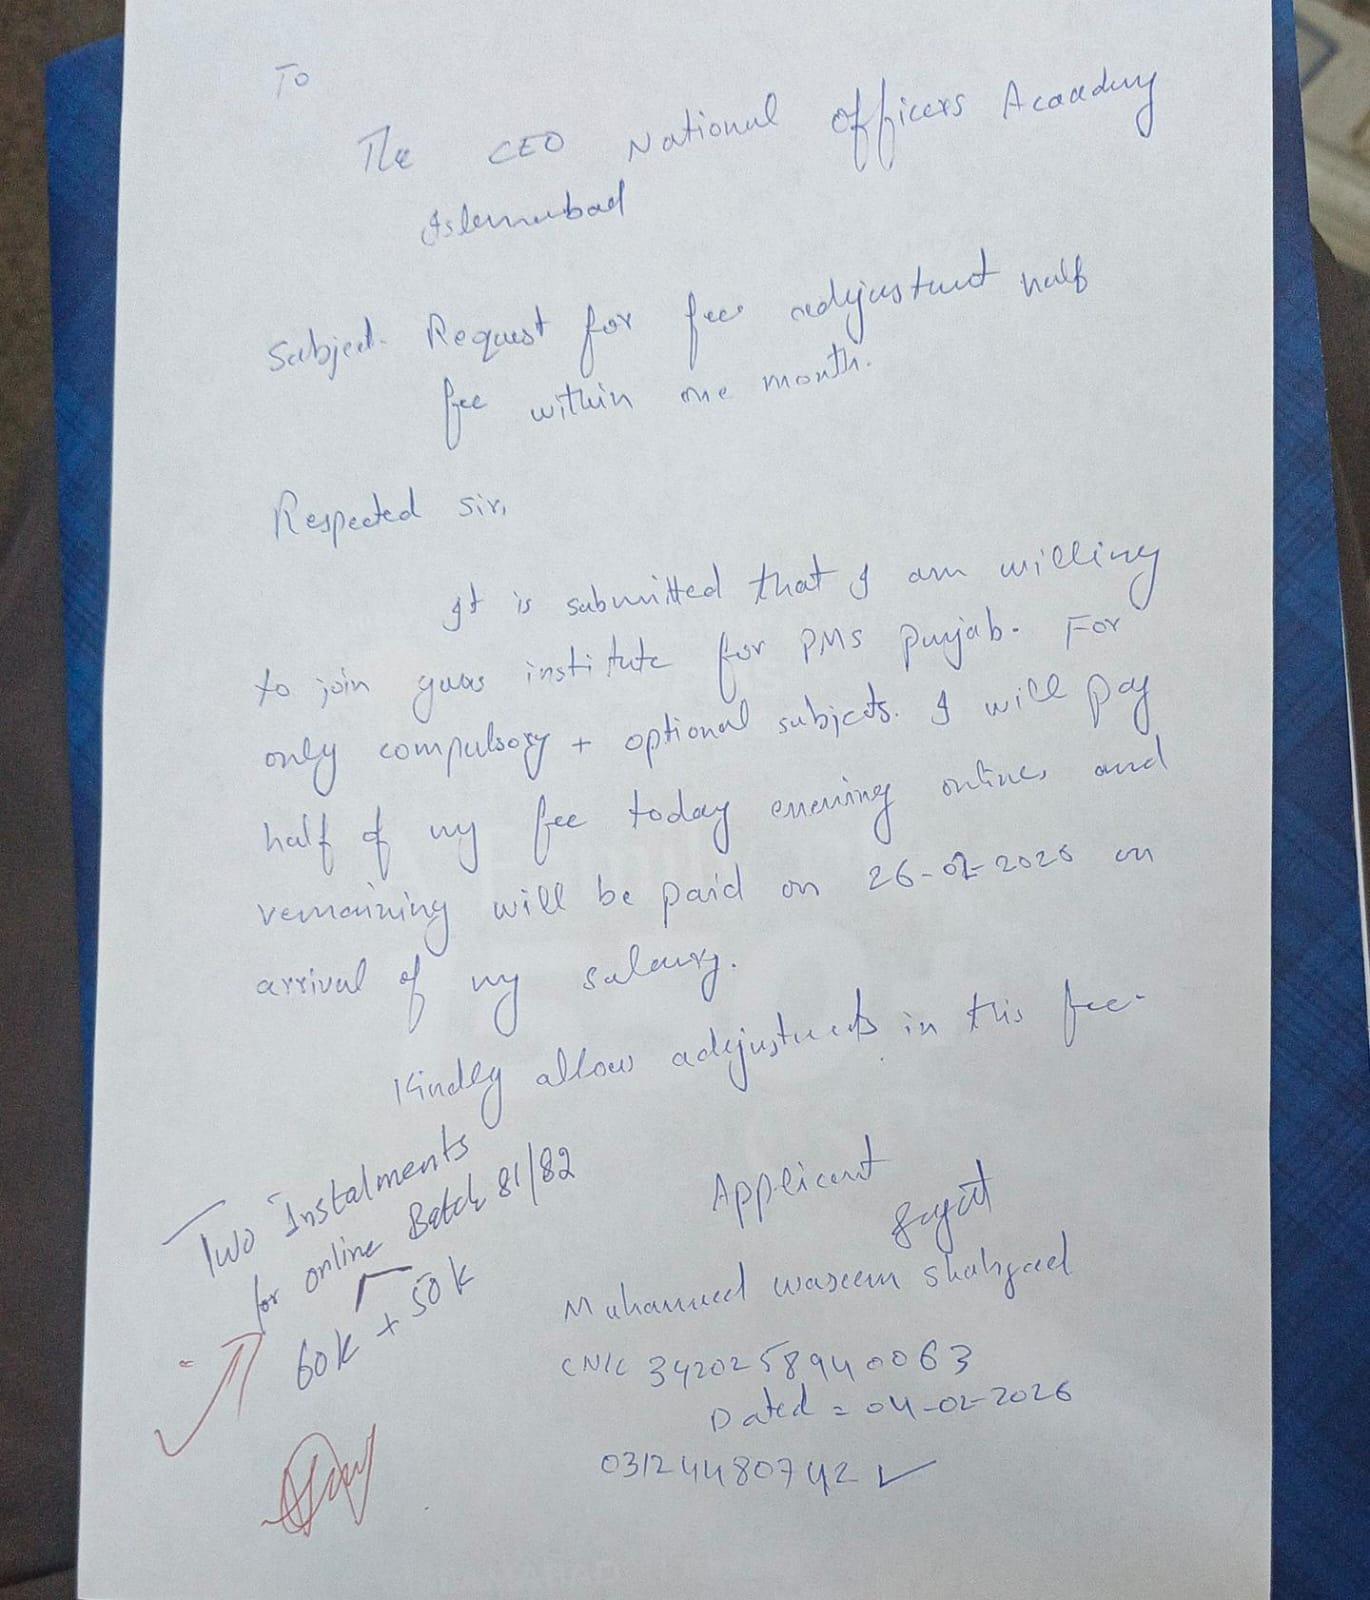 To
The CEO National Officers Acaadmy
Islamabad
Subject. Request for fee half
fee within one month.
Respected Sir,
It is submitted that I am willing
to join your institute for PMS Punjab. For
only compulsory + optional subjects. I will pay
half of my fee today online, and
remaining will be paid on 26-02-2026 on
arrival of my salary.
Kindly allow in this fee.
Two Instalments
for online Batch 81/82
60k + 50k
Applicant
Muhammed waseem shahzad
CNIC 3420258940063
Dated = 04-02-2026
03124480742